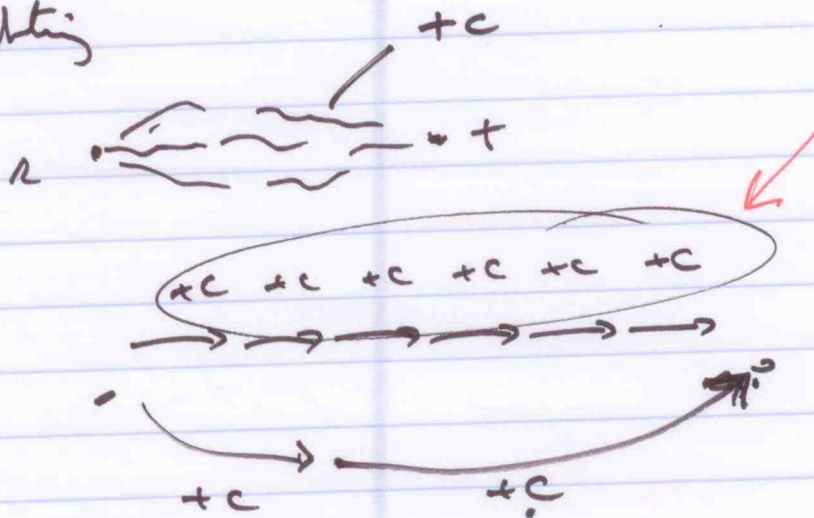 +c
s t
+c +c +c +c +c +c
+c +c